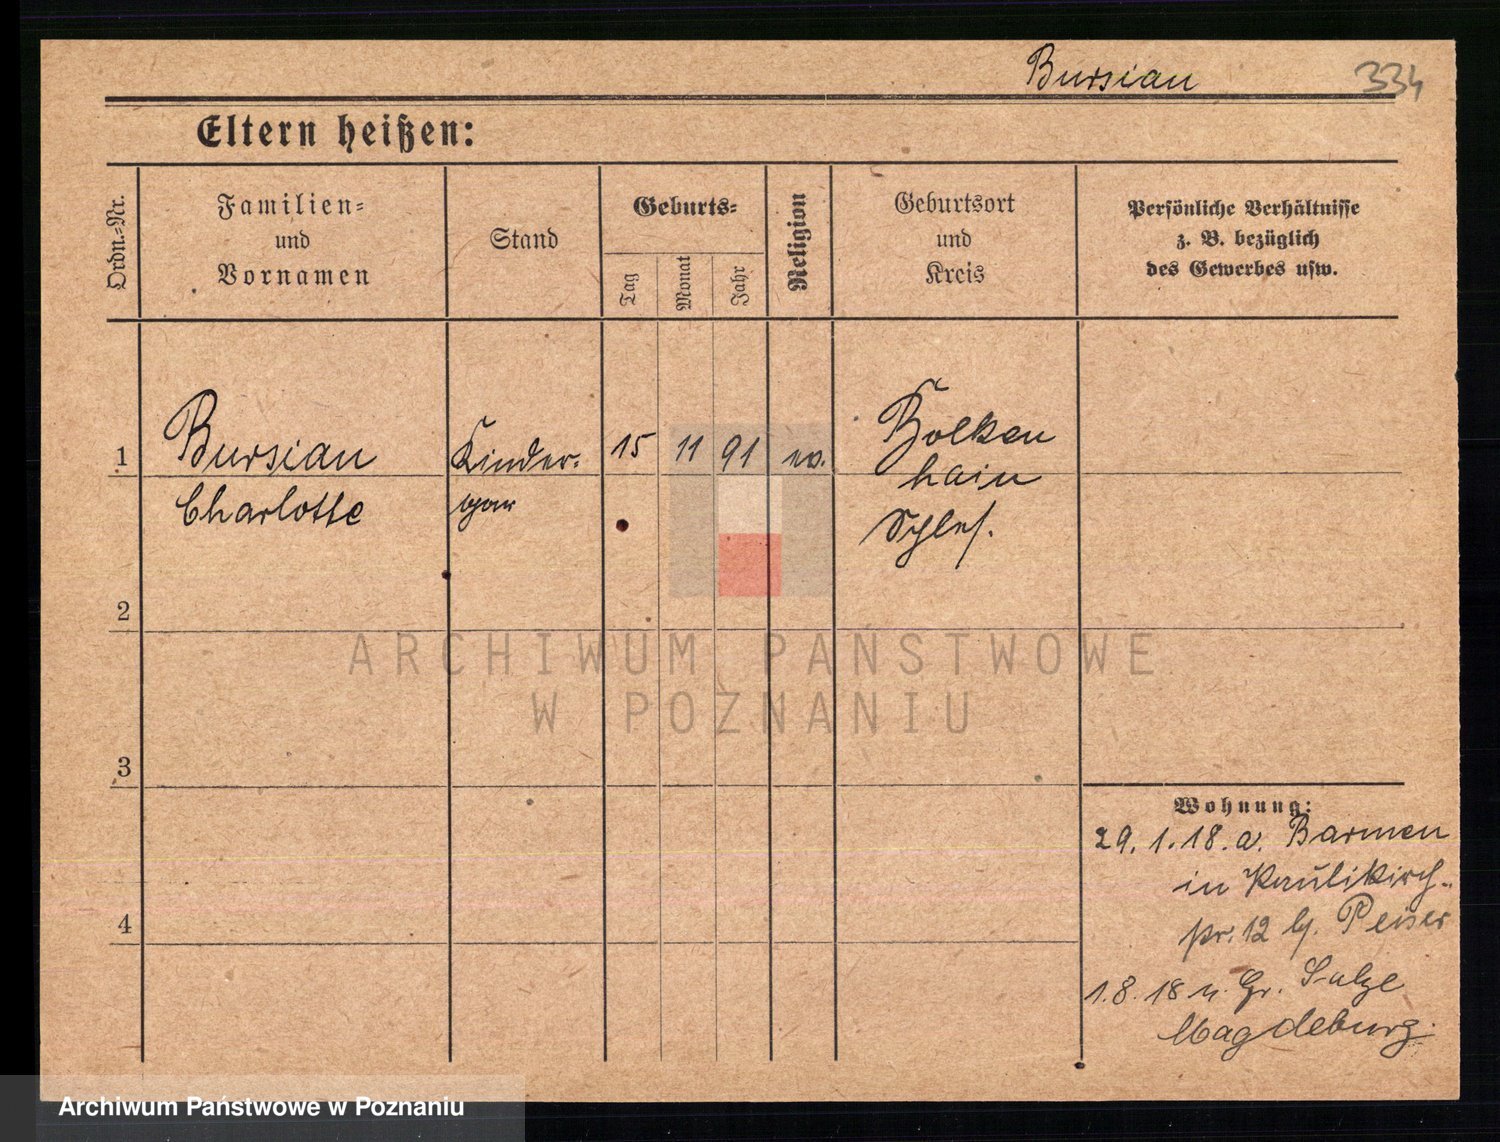 Bursian 334
Eltern heißen:
Ordn.-Nr.
Familien-
und
Vornamen
Stand
Geburts-
Tag
Monat
Jahr
Religion
Geburtsort
und
Kreis
Persönliche Verhältnisse
z. B. bezüglich
des Gewerbes usw.
1 Bursian Kinder- 15 11 91 ev. Bolken
hain
Charlotte
Schles.
2
3
4
ARCHIWUM PAŃSTWOWE
W POZNANIU
Wohnung:
29. 1. 18. a. Barmen
in Paulikirch-
12 Peiser
1. 8. 18 n. Gr. Salze
Magdeburg.
Archiwum Państwowe w Poznaniu